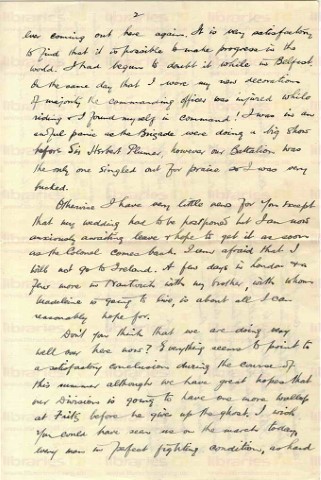 2
ever coming out here again. It is very satisfactory
to find that it is possible to make progress in the
world. I had begun to doubt it while in Belfast.
On the same day that I wore my new decorations
of majority the commanding officer was injured while
riding & I found myself in command! I was in an
awful panic as the Brigade were doing a big show
before Sir Herbert Plumer, however our Battalion was
the only one singled out for praise & I was very
bucked.
Otherwise I have very little news for you except
that my wedding had to be postponed but I am now
anxiously awaiting leave & hope to get it as soon
as the Colonel comes back. I am afraid that I
will not go to Ireland. A few days in London & a
few more in Nantwich with my brother, with whom
Madeleine is going to live, is about all I can
reasonably hope for.
Don't you think that we are doing very
well over here now? Everything seems to point to
a satisfactory conclusion during the course of
this summer although we have great hopes that
our Division is going to have one more wallop
at Fritz before he give up the ghost. I wish
you could have seen us on the march today,
every man in perfect fighting condition, as hard